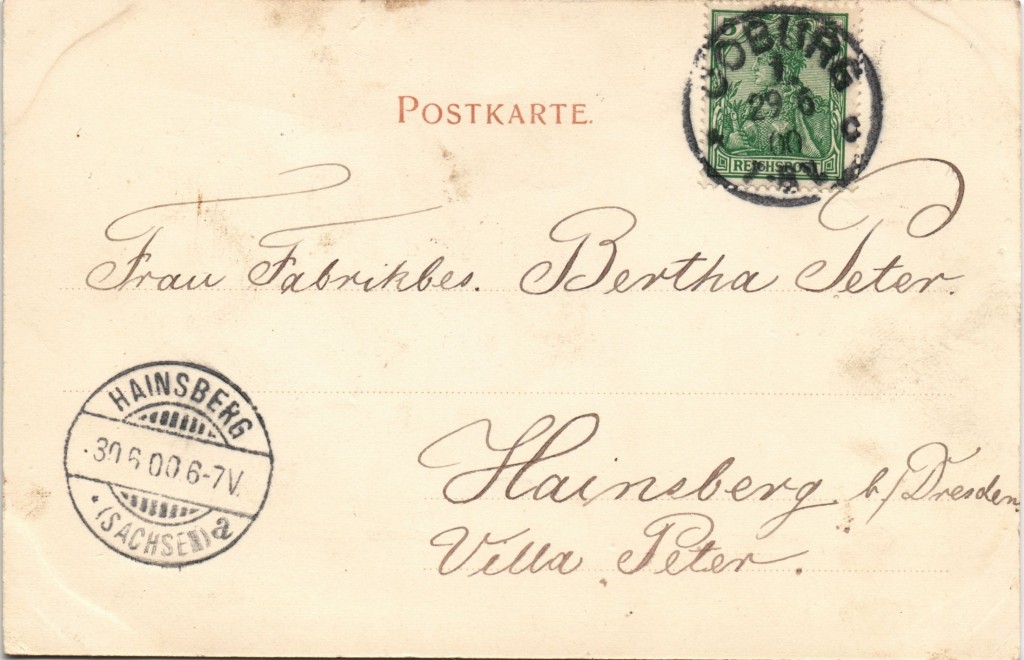 POSTKARTE.
COBURG
1
29 6
00
c
REICHSPOST
Frau Fabrikbes. Bertha Peter.
HAINSBERG
30 6 00 6-7V.
(SACHSEN) a
Hainsberg b/Dresden
Villa Peter.